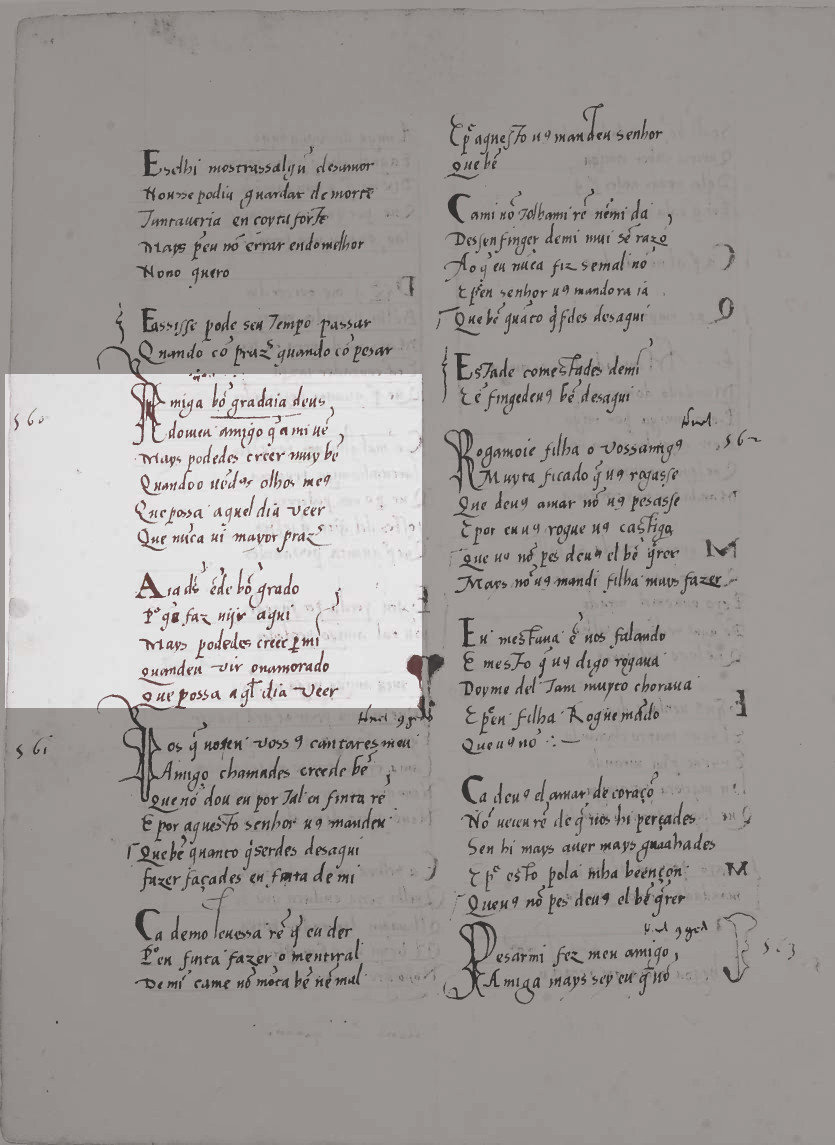 Eselhi mostrassalgũ desamor
Nonsse podia guardar de morte
Tantaueria en coyta forte
Mays p̃eu nõ errar endomelhor
Nono quero
Eassisse pode seu Tempo passar
Quando cõ praz̃ quando cõ pesar
560
Amiga bõ gradaia deus
do meu amigo q̃ a mi uẽ
Mays podedes creer muy bẽ
Quandoo uẽdes olhos meꝯ
Que possa aquel dia veer
Que nũca ui mayor praz̃
Aia ds̃ ẽde bõ grado
P̃o q̃o faz uijr aqui
Mays podedes creer ꝑ mi
quandeu vir onamorado
Que possa aq̃l dia veer
561
Pos q̃ nosen vossꝯ cantares meu
Amigo chamades creede bẽ
Que nõ dou eu por Tal en finta rẽ
E por aquesto senhor uꝯ mandeu
Que bẽ quanto q̃serdes desaqui
fazer façades en finta de mi
Ca demo leuessa rẽ q̃ eu der
P̃o en finta fazer o mentiral
De mĩ came nõ mõta bẽ nẽ mal
E p̃ aquesto uꝯ mandeu senhor
Que bẽ
Cami nõ tolhami rẽ nẽmi da
Dessenfinger demi mui sẽ razõ
Ao q̃ eu nũca fiz semal nõ
E p̃en senhor uꝯ mandora ia
Que bẽ quãto q̃sdes desaqui
Estade comestades demi
E ẽfingedeuꝯ bẽ desaqui
562
Rogamoie filha o vossamigꝯ
Muyta ficado q̃ uꝯ rogasse
Que deuꝯ amar nõ uꝯ pesasse
E por en uꝯ rogue uꝯ castigo
Que uꝯ nõ pes deuꝯ el bẽ q̃rer
Mays nõ uꝯ mandi filha mays fazer
Eu mestaua ẽ uos falando
E mesto q̃ uꝯ digo rogaua
Doyme del Tam muyto choraua
E p̃en filha Rogue mãdo
Que uꝯ nõ
Ca deuꝯ el amar de coraçõ
Nõ ueueu rẽ de q̃ uos hi perçades
Sen hi mays auer mays guaahades
E p̃ esto pola mha beençon
Que uꝯ nõ pes deuꝯ el bẽ q̃rer
563
Pesarmi fez meu amigo
Amiga mays sey eu q̃ nõ